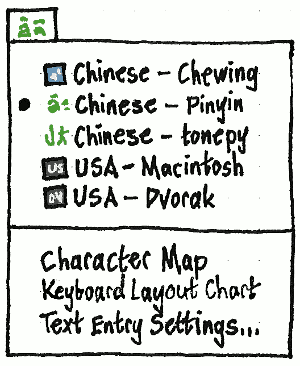 ã
Chinese – Chewing
ã Chinese – Pinyin
Chinese – tonepy
US USA – Macintosh
DV USA – Dvorak
Character Map
Keyboard Layout Chart
Text Entry Settings...